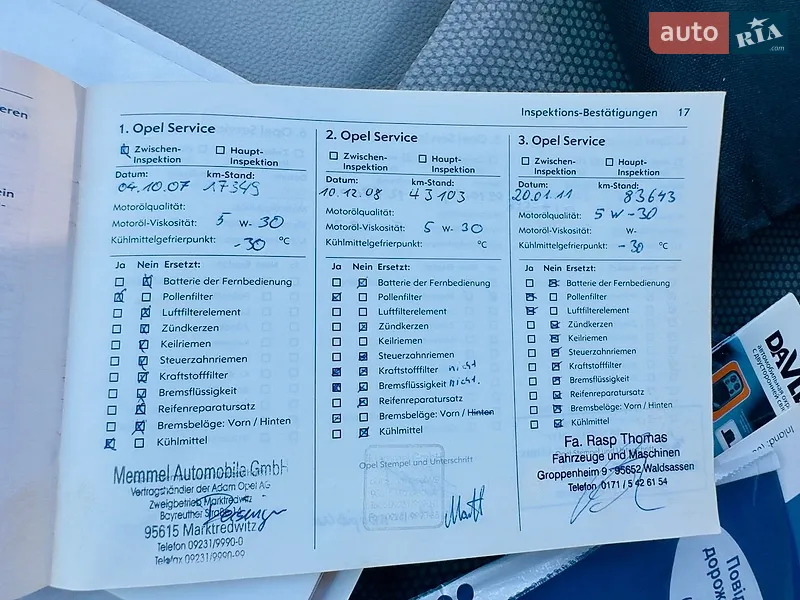 auto RIA.com
eren
ein
Inspektions-Bestätigungen 17
1. Opel Service
Zwischen-Inspektion Haupt-Inspektion
Datum: km-Stand:
04.10.07 17349
Motorölqualität:
Motoröl-Viskosität: 5 W- 30
Kühlmittelgefrierpunkt: -30 °C
Ja Nein Ersetzt:
Batterie der Fernbedienung
Pollenfilter
Luftfilterelement
Zündkerzen
Keilriemen
Steuerzahnriemen
Kraftstofffilter
Bremsflüssigkeit
Reifenreparatursatz
Bremsbeläge: Vorn / Hinten
Kühlmittel
Memmel Automobile GmbH
Vertragshändler der Adam Opel AG
Zweigbetrieb Marktredwitz
Bayreuther Straße
95615 Marktredwitz
Telefon 09231/9990-0
Telefax 09231/9990-99
2. Opel Service
Zwischen-Inspektion Haupt-Inspektion
Datum: km-Stand:
10.12.08 43103
Motorölqualität:
Motoröl-Viskosität: 5 W- 30
Kühlmittelgefrierpunkt: °C
Ja Nein Ersetzt:
Batterie der Fernbedienung
Pollenfilter
Luftfilterelement
Zündkerzen
Keilriemen
Steuerzahnriemen
Kraftstofffilter nicht
Bremsflüssigkeit nicht.
Reifenreparatursatz
Bremsbeläge: Vorn / Hinten
Kühlmittel
Opel Stempel und Unterschrift
3. Opel Service
Zwischen-Inspektion Haupt-Inspektion
Datum: km-Stand:
20.01.11 83643
Motorölqualität: 5 W -30
Motoröl-Viskosität: W-
Kühlmittelgefrierpunkt: -30 °C
Ja Nein Ersetzt:
Batterie der Fernbedienung
Pollenfilter
Luftfilterelement
Zündkerzen
Keilriemen
Steuerzahnriemen
Kraftstofffilter
Bremsflüssigkeit
Reifenreparatursatz
Bremsbeläge: Vorn / Hinten
Kühlmittel
Fa. Rasp Thomas
Fahrzeuge und Maschinen
Groppenheim 9 · 95652 Waldsassen
Telefon 0171 / 5 42 61 54
DAV
автомобильная
с двусторонней
Inland:
Повід
дорож